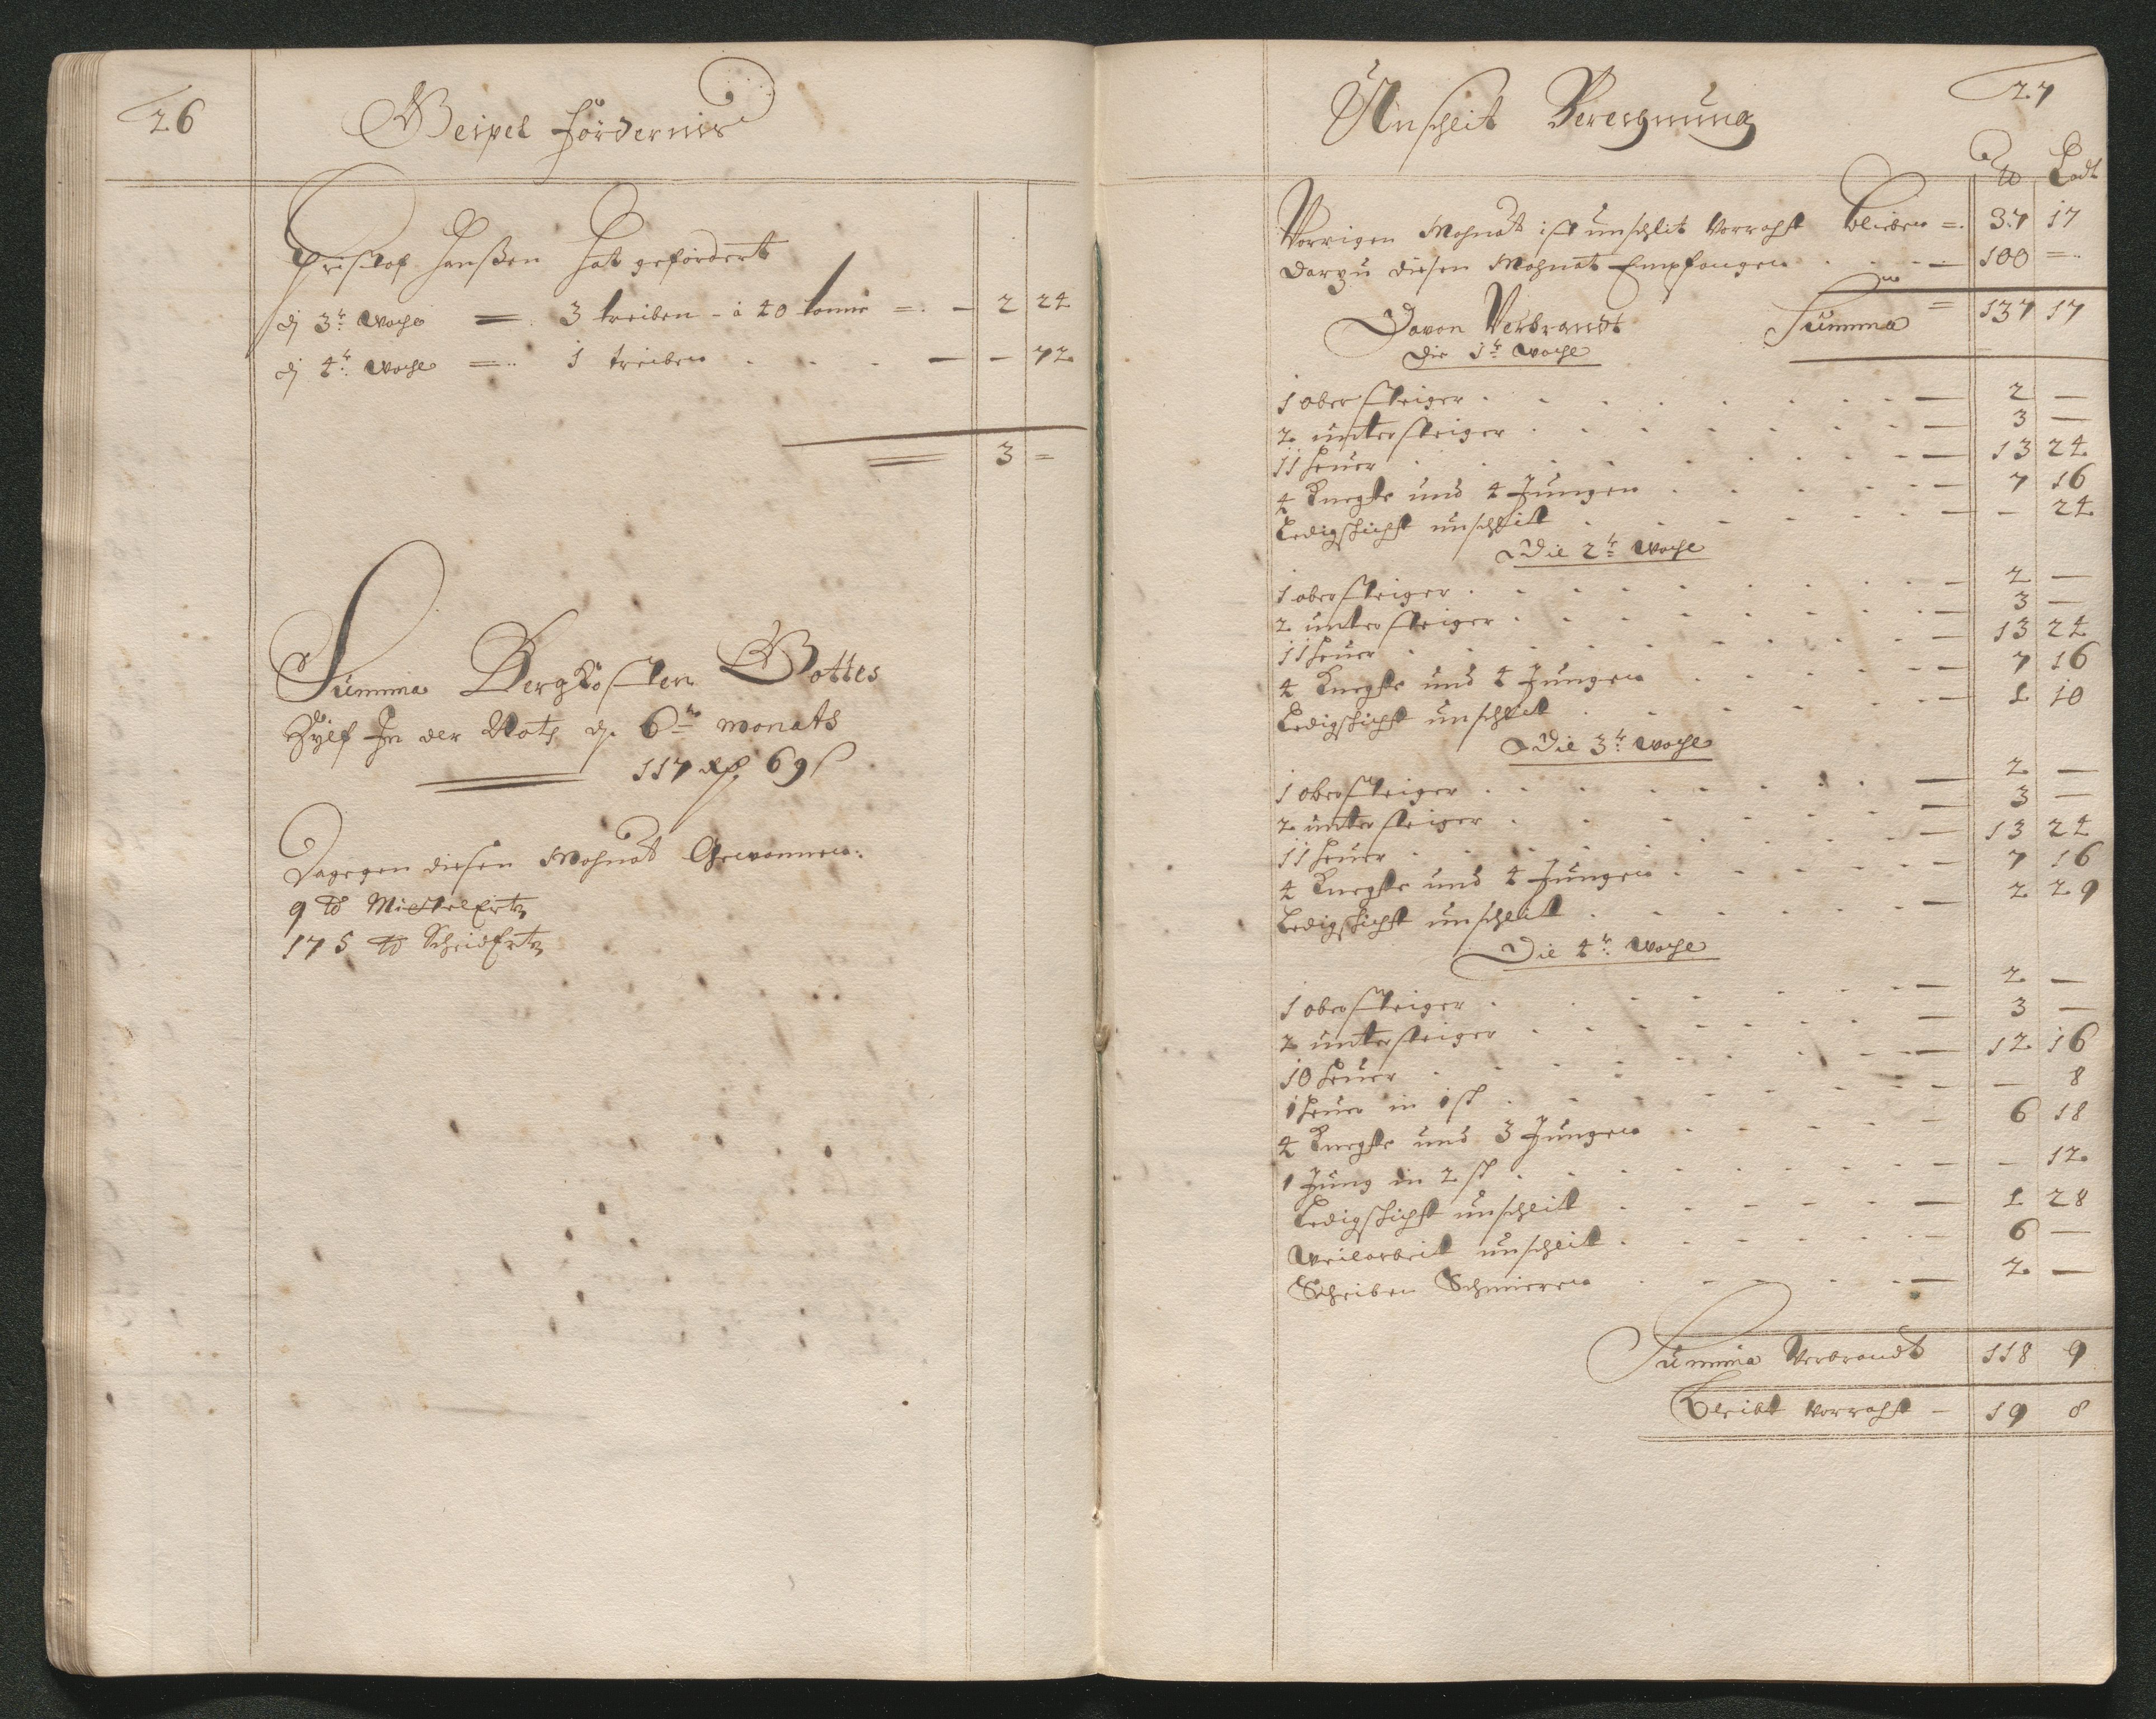 26
Geipel fördernis
Christof Hanßen Hat gefördert
dj 3t. Woche =. 3 treiben - à 40 tonne =. - 2 24
dj 4t. Woche =.. 1 treiben . . . — - 72
3 =
Summa Bergkosten Gottes
Hylf In der Noth dh. 6t. monats
117 Rth 69 s
Dagegen diesen Mohnat Gewonnen:
9 to MittelErtz
175 to ScheidErtz
27
Unschlit Berechnung
to Lodt
Vorrigen Mohnat ist unschlit Vorraht blieben =. 37 17
darzu diesen Mohnat Empfangen . . . — 100 =..
Summa = 137 17
Davon Verbrandt
Die 1t. Woche
1 obersteiger . . . . . . . . — 2 —
2 untersteiger . . . . . . . — 3 —
11 heuer . . . . . . . . — 13 24
4 Knechte und 4 Jungen . . . . . — 7 16
Ledigschicht unschlitt . . . . . . — - 24
Die 2t. Woche
1 obersteiger . . . . . . . . — 2 —
2 untersteiger . . . . . . . — 3 —
11 heuer . . . . . . . . — 13 24
4 Knechte und 4 Jungen . . . . . — 7 16
Ledigschicht unschlit . . . . . . — 1 10
Die 3t. Woche
1 obersteiger . . . . . . . . — 2 —
2 untersteiger . . . . . . . — 3 —
11 heuer . . . . . . . . — 13 24
4 Knechte und 4 Jungen . . . . . — 7 16
Ledigschicht unschlit . . . . . . — 2 29
Die 4t. Woche
1 obersteiger . . . . . . . . — 2 —
2 untersteiger . . . . . . . — 3 —
10 heuer . . . . . . . . — 12 16
1 heuer in 1 sch . . . . . . . — — 8
4 Knechte und 3 Jungen . . . . . — 6 18
1 Jung in 2 sch . . . . . . . — — 12
Ledigschicht unschlitt . . . . . — 1 28
Weilarbeit unschlit . . . . . — 6 —
Scheiben Schmieren . . . . . — 2 —
Summa Verbrandt 118 9
Bleibt Vorraht — 19 8